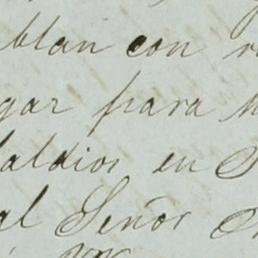 blan con
gar para
aldios en
al Señor